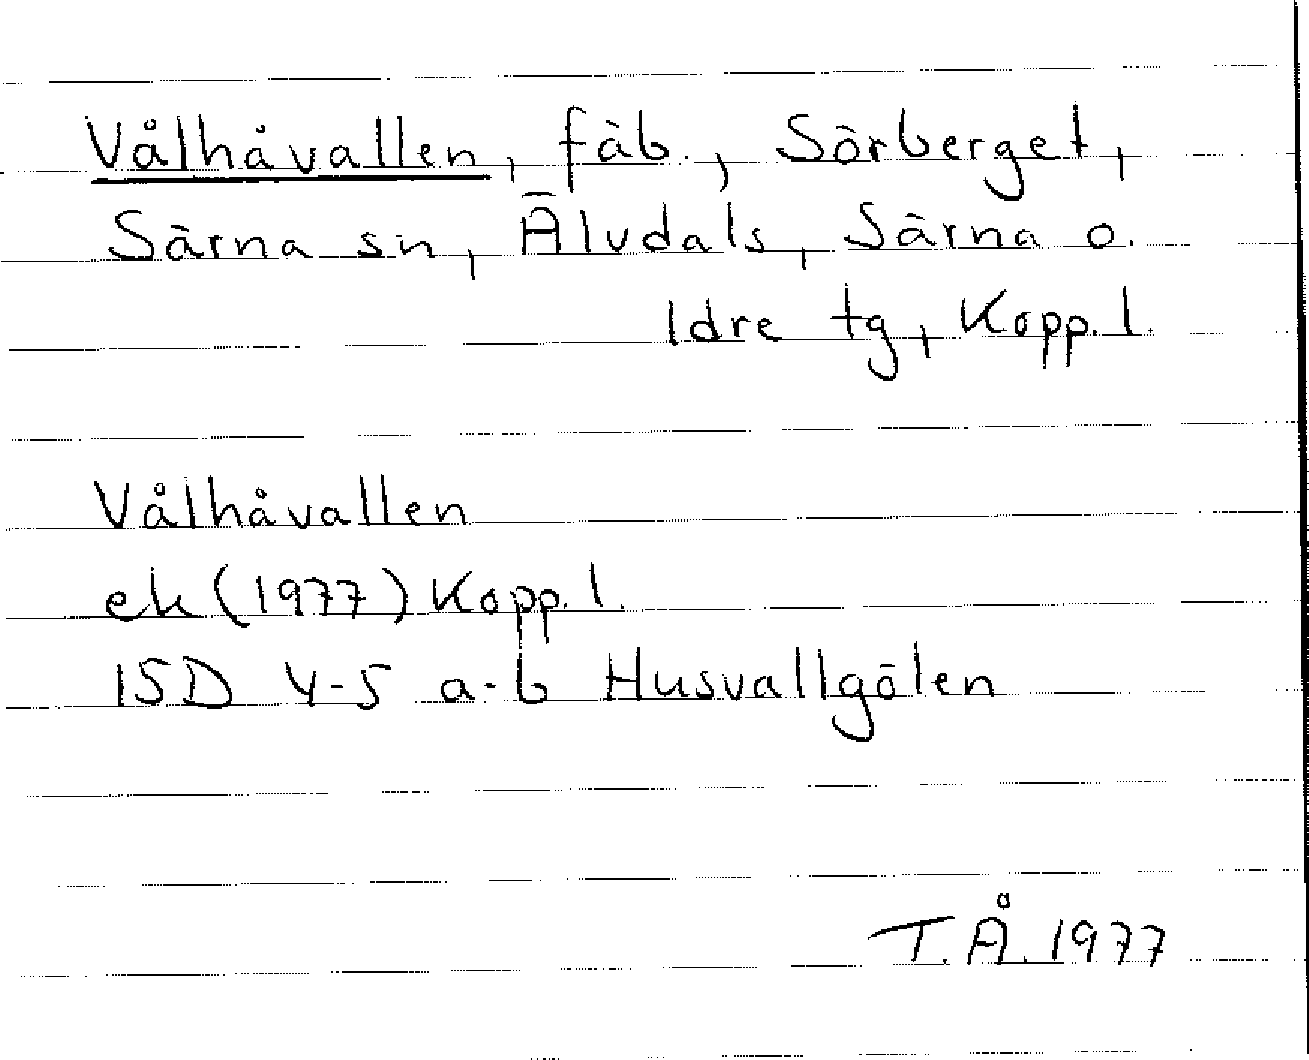 Vålhåvallen, fäb., Sörberget,
Särna sn, Älvdals, Särna o.
Idre tg, Kopp. l.
Vålhåvallen
ek (1977) Kopp. l.
15D 4-5 a-b Husvallgölen
T. Å. 1977